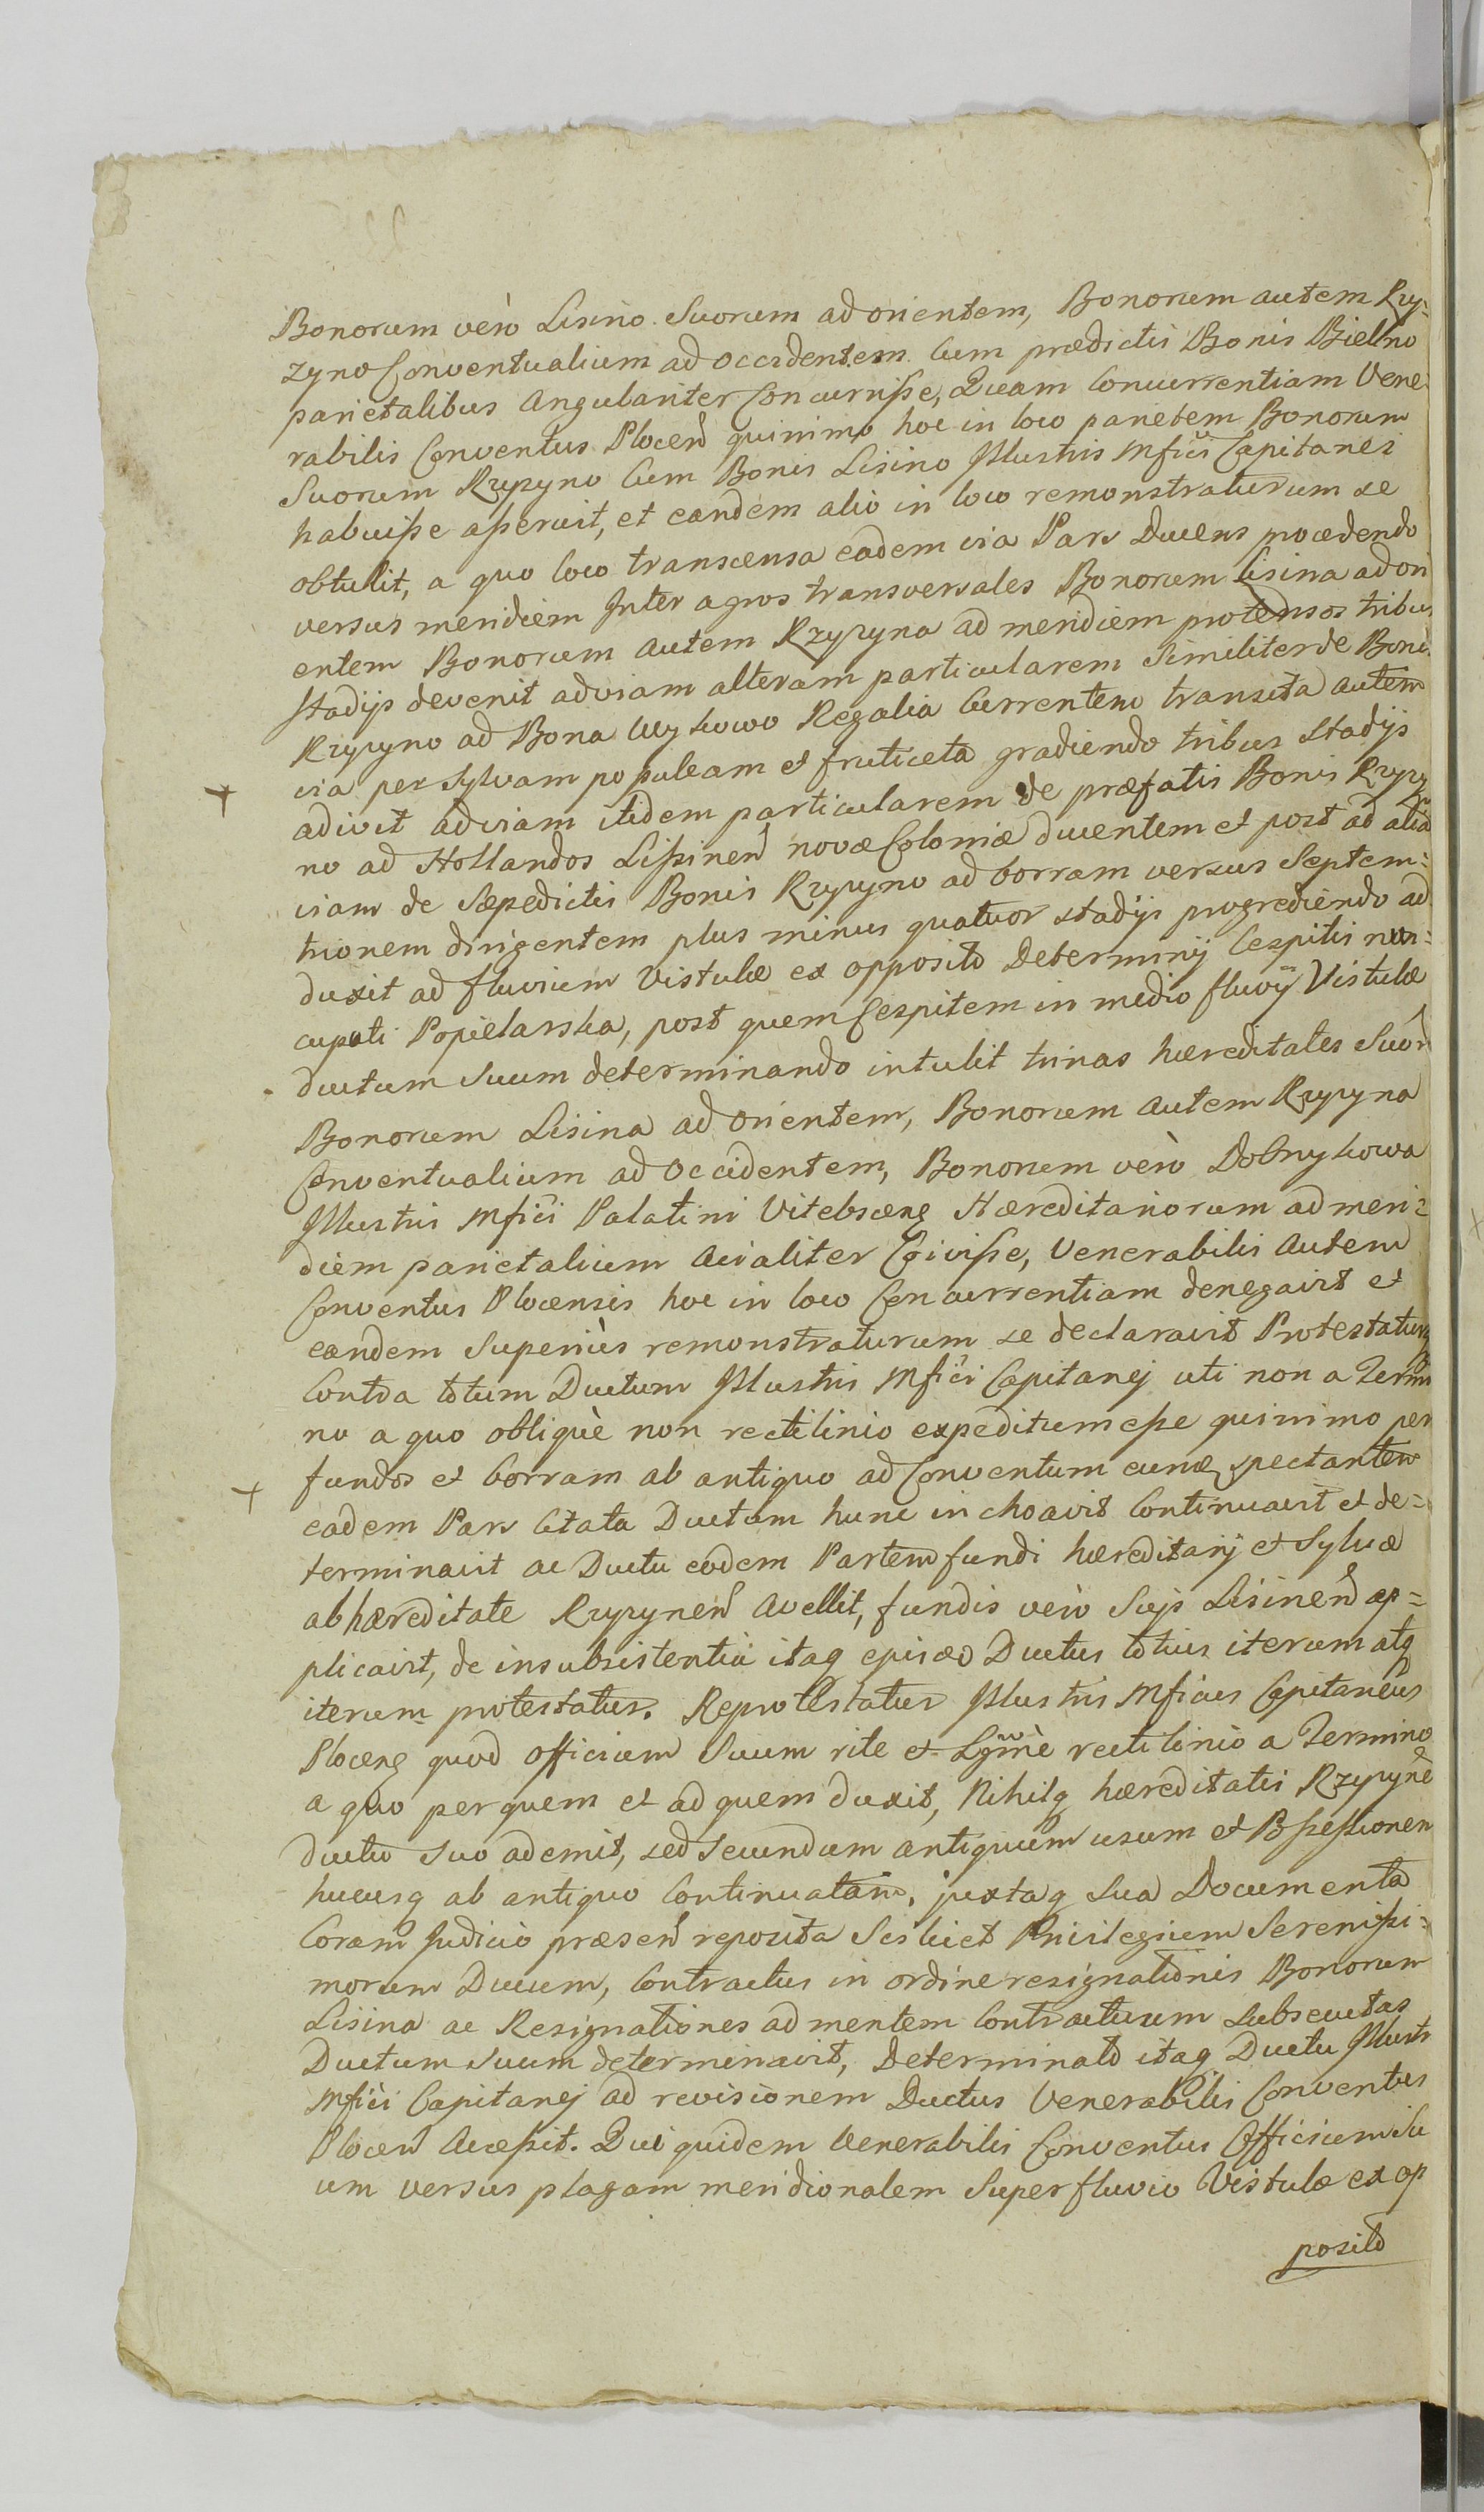 Bonorum verò Lisino Suorum ad orientem, Bonorum autem Rzy-
zyno Conventualium ad Occidentem Cum prædictis Bonis Bielino
parietalibus Angulariter Concurrisse, Quam Concurrentiam Vene-
rabilis Conventus Plocen quinimo hoc in loco parietem Bonorum
Suorum Rzyzyno Cum Bonis Lisino Illustris Mfici Capitanei
habuisse asseruit, et eandem alio in loco remonstraturum se
obtulit, a quo loco transcensa eadem via Pars Ducens procedendo
versus meridiem Inter agros transversales Bonorum Lisina ad ori
entem Bonorum autem Rzyzyna ad meridiem protensos tribus
stadijs devenit ad viam alteram particularem Similiter de Bonis
Rzyzyno ad Bona Regalia Currentem transita autem
via per Sylvam populeam et fruticeta gradiendo tribus Stadijs
adivit ad viam itidem particularem de præfatis Bonis Rzyzy
no ad Hollandos Lissinen novæ Coloniæ ducentem et post ad aliã
viam de Sæpedictis Bonis Rzyzyno ad borram versus Septem=
trionem dirigentem plus minus quatuor stadijs progrediendo ad
duxit ad fluvium Vistulæ ex opposito Determinij Cespitis nun=
cupati Popielarska, post quem Cespitem in medio fluvij Vistulæ
ductum Suum determinando intulit trinas hæreditates Suor
Bonorum Lisina ad Orientem, Bonorum autem Rzyzyna
Conventualium ad Occidentem, Bonorum verò Dobrzykowa
Illustris Mfici Palatini Vitebsceng Hæreditariorum ad meri=
diem parietalium Acialiter Coivisse, Venerabilis Autem
Conventus Plocensis hoc in loco Concurrentiam denegavit et
eandem Superiùs remonstraturum se declaravit Protestatur
Contra totum Ductum Illustris Mfici Capitanej uti non a Termi
no a quo obliquè non rectilinio expeditum esse quinimo per
fundos et borram ab antiquo ad Conventum eunq spectantem
eadem Pars Citata Ductum hunc inchoavit Continuavit et de=
terminavit ac Ductu eodem Partem fundi hæreditarij et Sylvæ
ab hæreditate Rzyzynen Avellit, fundis verò Suis Lisinen ap=
plicavit, de insubsistentia itaq Ductus totius iterum atq
iterum protestatur. Reprotestatur Illustris Mficus Capitaneus
Ploceng quod Officium Suum rite et Lgimè rectilinio a Termino
a quo per quem et ad quem duxit, Nihilq hæreditatis Rzyzyne
ductu suo ademit, sed Secundum antiquum usum et Possessionem
hucusq ab antiquo Continuatam, juxtaq Sua Documenta
Coram Judicio præsen reposita Scilicet Privilegium Serenissi=
morum Ducum, Contractus in ordine resignationis Bonorum
Lisina ac Resignationes ad mentem Contractuum Subsecutas
Ductum Suum determinavit, Determinato itaq Ductu Illustr
Mfici Capitanej ad revisionem Ductus Venerabilis Conventus
Plocen Accessit. Qui quidem Venerabilis Conventus Officium Su
um versus plagam meridionalem Super fluvio Vistulæ ex op
posito